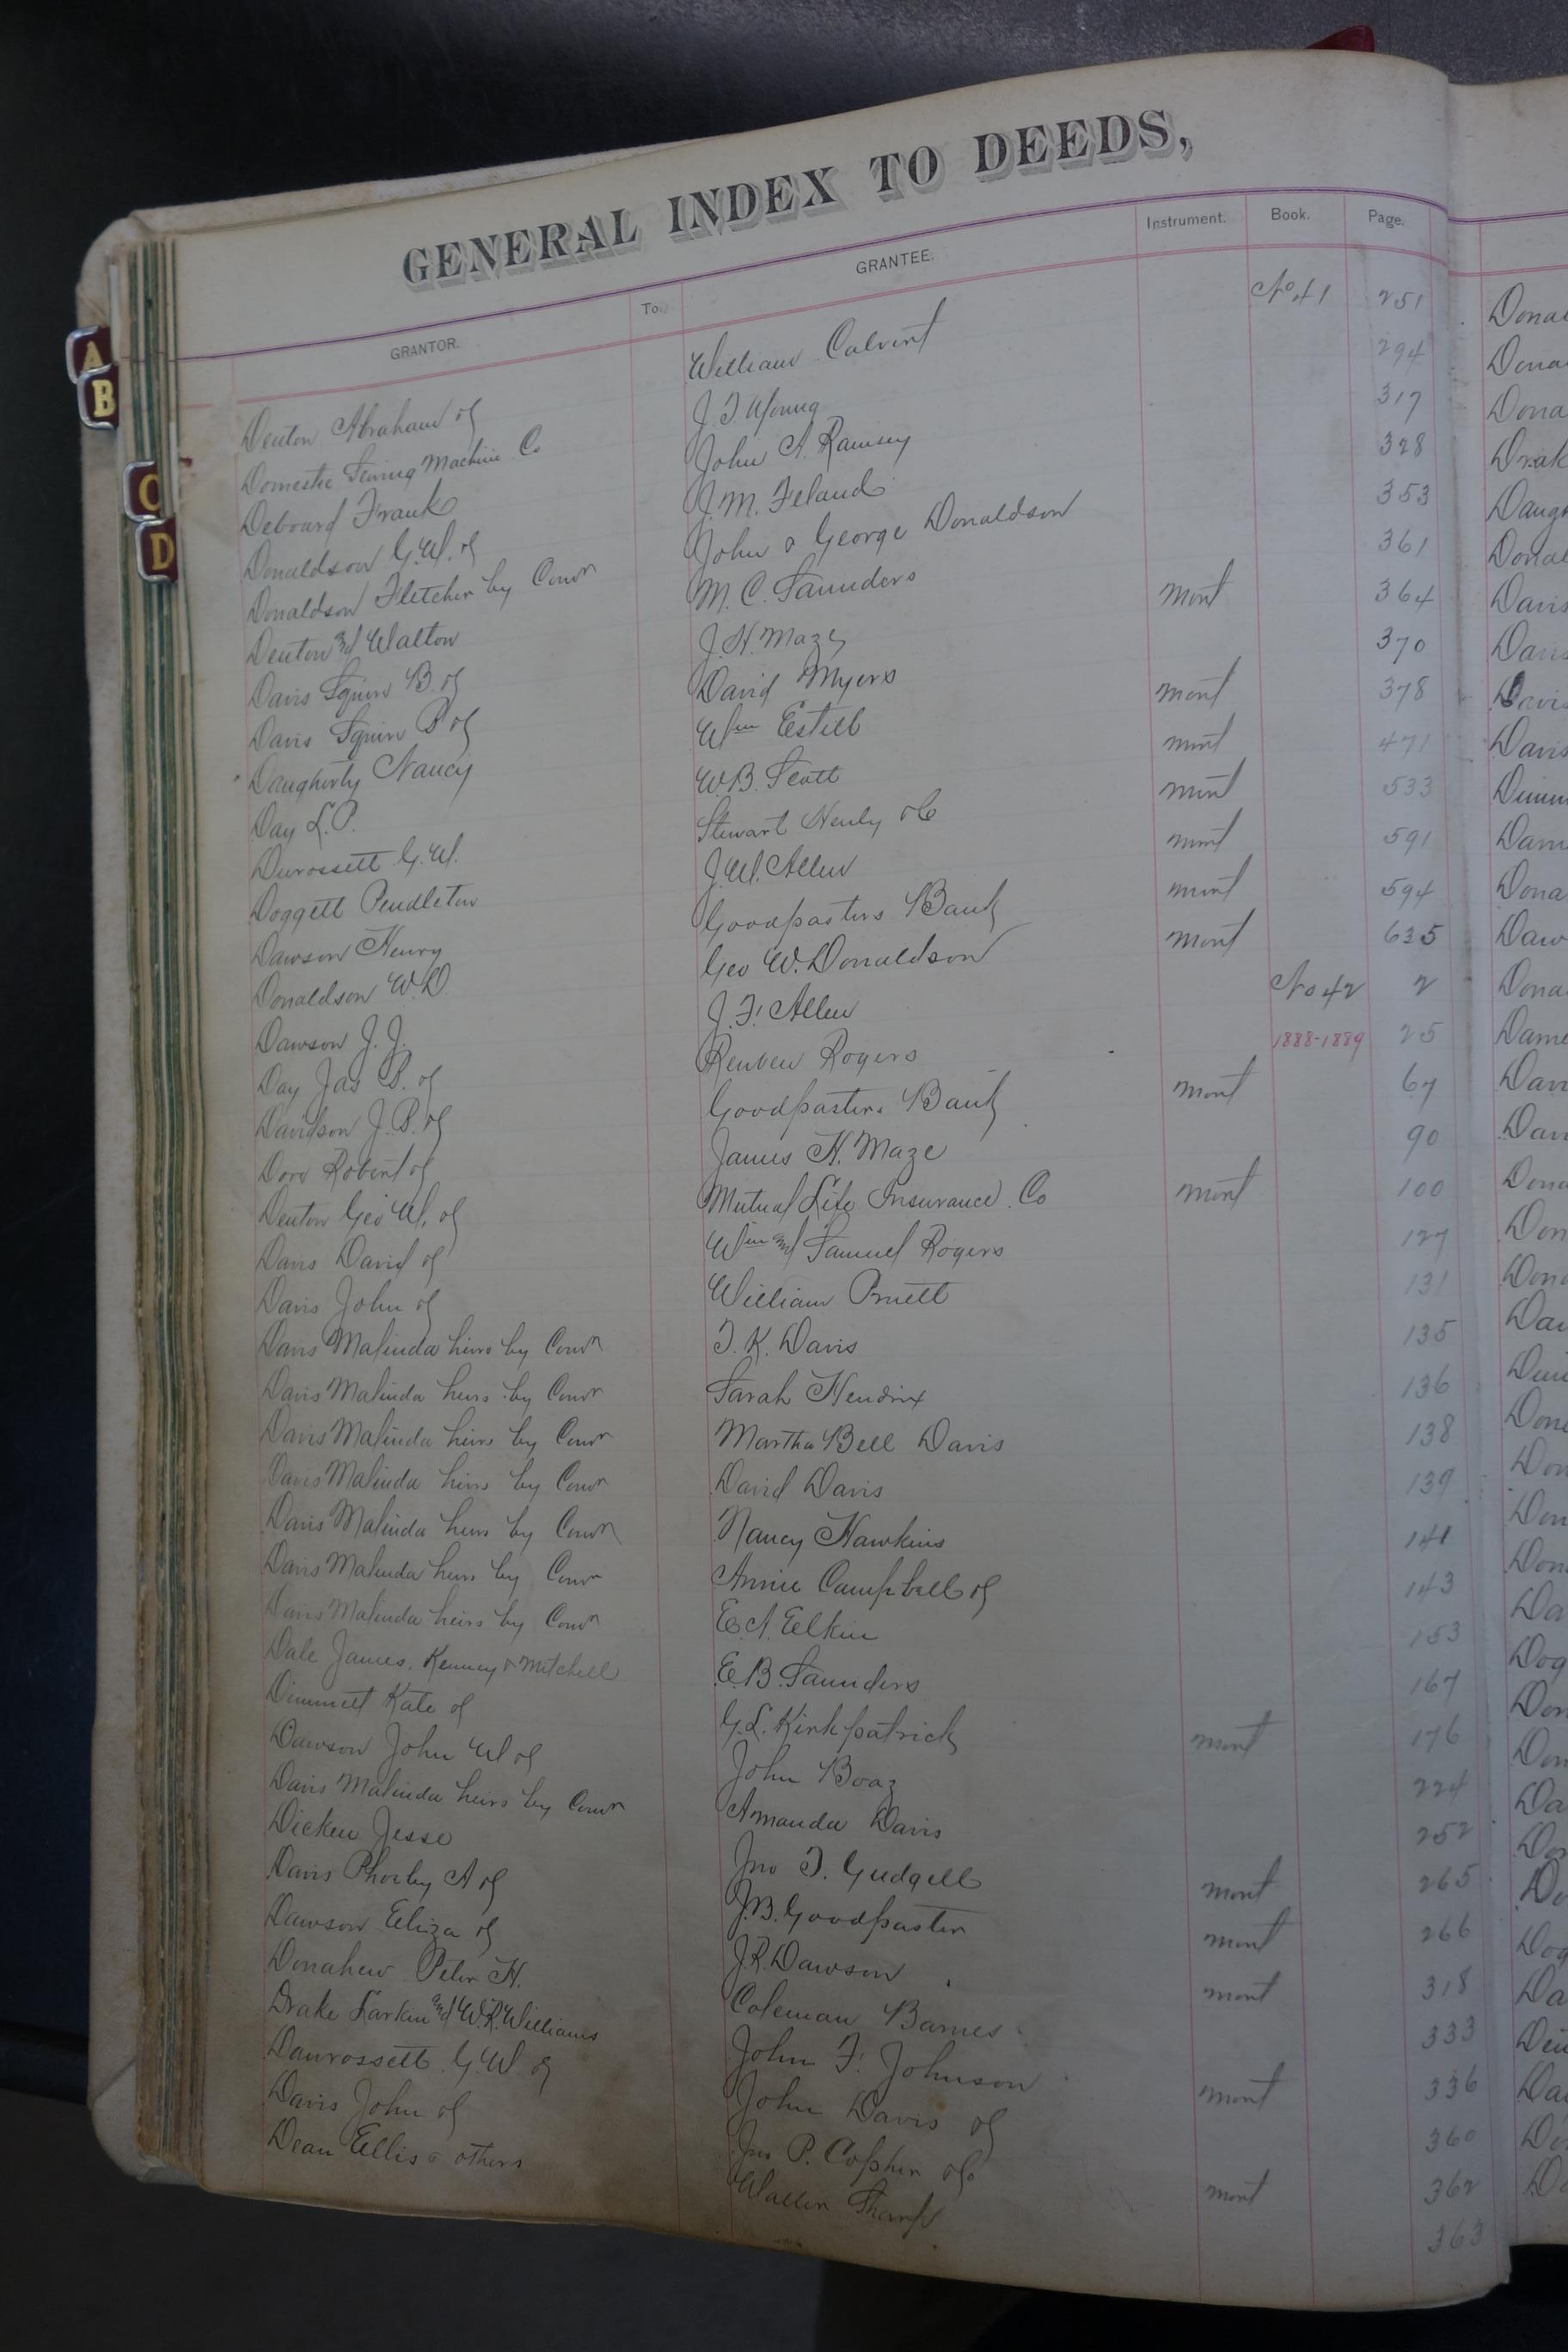 GENERAL INDEX TO DEEDS,
GRANTOR. To GRANTEE. Instrument. Book. Page.
Denton Abraham of William Calvert No 41 251
Domestic Sewing Machine Co J. T. Young 294
Deboard Frank John A. Ramsey 317
Donaldson G. W. of J. M. Feland 328
Donaldson Fletcher by Comr John & George Donaldson 353
Denton and Walton M. C. Saunders 361
Davis Squire B. of J. H. Maze mort 364
Davis Squire B of David Myers 370
Daugherty Nancy Wm Estill mort 378
Day L. P. W. B. Scott mort 471
Durossett G. W. Stewart Henly & Co mort 533
Doggett Pendleton J. W. Allen mort 591
Dawson Henry Goodpasters Bank mort 594
Donaldson W. D. Geo W. Donaldson mort 635
Dawson J. J. J. F. Allen No 42 2
Day Jas B. of Reuben Rogers 1888-1889 25
Davidson J. B. of Goodpasters Bank mort 67
Dove Robert of James H. Maze 90
Denton Geo W. of Mutual Life Insurance Co mort 100
Davis David of Wm and Samuel Rogers 127
Davis John of William Pruett 131
Davis Malinda heirs by Comr T. K. Davis 135
Davis Malinda heirs by Comr Sarah Hendrix 136
Davis Malinda heirs by Comr Martha Bell Davis 138
Davis Malinda heirs by Comr David Davis 139
Davis Malinda heirs by Comr Nancy Hawkins 141
Davis Malinda heirs by Comr Annie Campbell of 143
Davis Malinda heirs by Comr E. A. Elkin 153
Dale James, Kenney & Mitchell E. B. Saunders 167
Dimmitt Kate of G. L. Kirkpatrick mort 176
Dawson John W of John Boaz 224
Davis Malinda heirs by Comr Amanda Davis 252
Dicken Jesse Jno T. Gudgell mort 265
Davis Phoeby A of J. B. Goodpaster mort 266
Dawson Eliza of J. R. Dawson mort 318
Donahew Peter H. Coleman Barnes 333
Drake Larkin and W. R. Williams John F. Johnson mort 336
Daurossett G. W. of John Davis of 360
Davis John of Jno P. Copher &c mort 362
Dean Ellis & others Waller Sharp 363
A
B
C
D